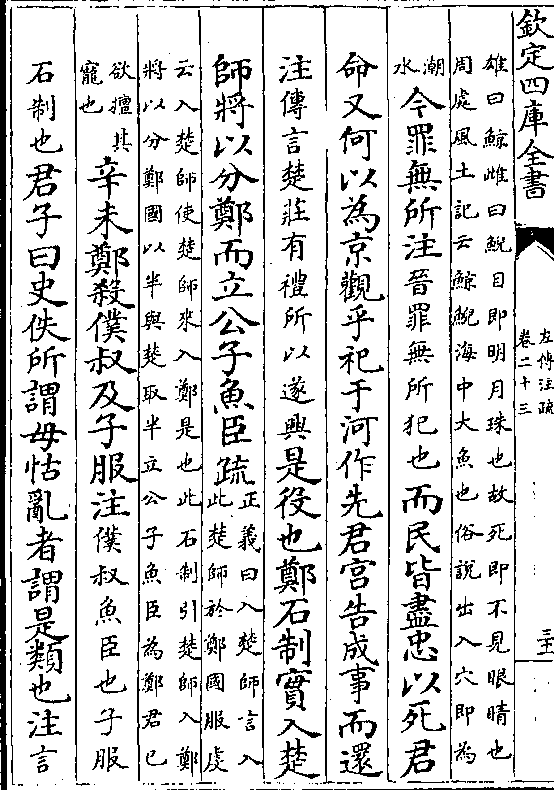 欽定四庫全書
左傳注疏
卷二十三
雄曰鯨雌曰鯢目即明月珠也故死即不見眼睛也
周處風土記云鯨鯢海中大魚也俗說出入穴即為
潮
水
今罪無所注晉罪無所犯也而民皆盡忠以死君
命又何以為京觀乎祀于河作先君宮告成事而還
注傳言楚莊有禮所以遂興是役也鄭石制實入楚
師將以分鄭而立公子魚臣疏
正義曰入楚師言入
此楚師於鄭國服虔
云入楚師使楚師來入鄭是也此石制引楚師入鄭
將以分鄭國以半與楚取半立公子魚臣為鄭君已
欲擅其
寵也
辛未鄭殺僕叔及子服注僕叔魚臣也子服
石制也君子曰史佚所謂毋怙亂者謂是類也注言